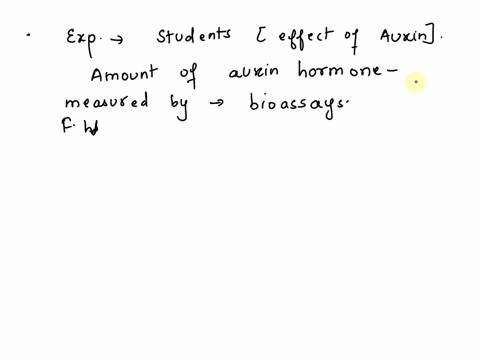 . Exp. → Students [effect of Auxin].
Amount of auxin hormone –
measured by → bioassays.
F. W